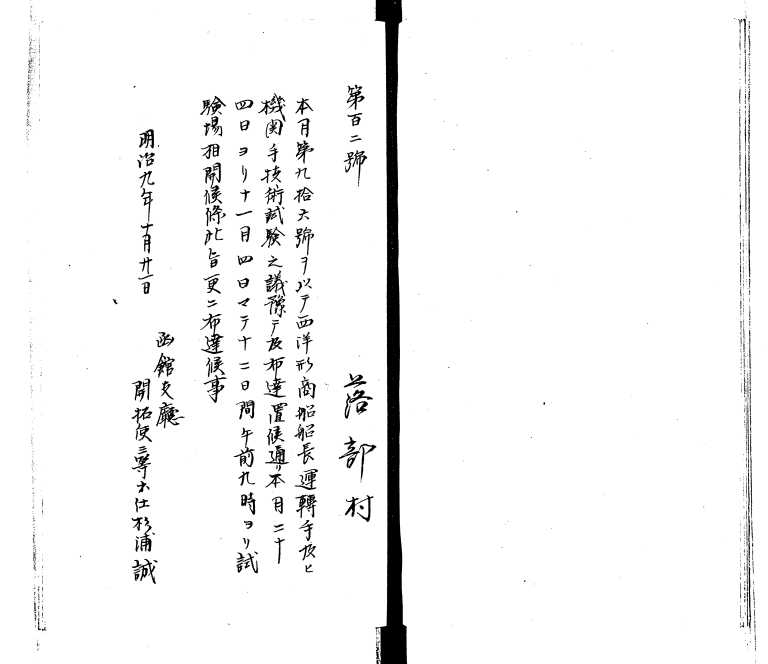 第百二號
落部村
本月第九拾六號ヲ以テ西洋形商船船長運轉手及ヒ
機関手技術試験之議豫テ及布達置候通リ本月二十
四日ヨリ十一月四日マテ十二日間午前九時ヨリ試
験場相開候條此旨更ニ布達候事
明治九年十月廿一日
函館支廳
開拓使三等出仕杉浦誠